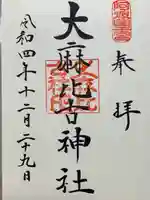 奉拝
大麻比古神社
令和四年十二月二十九日